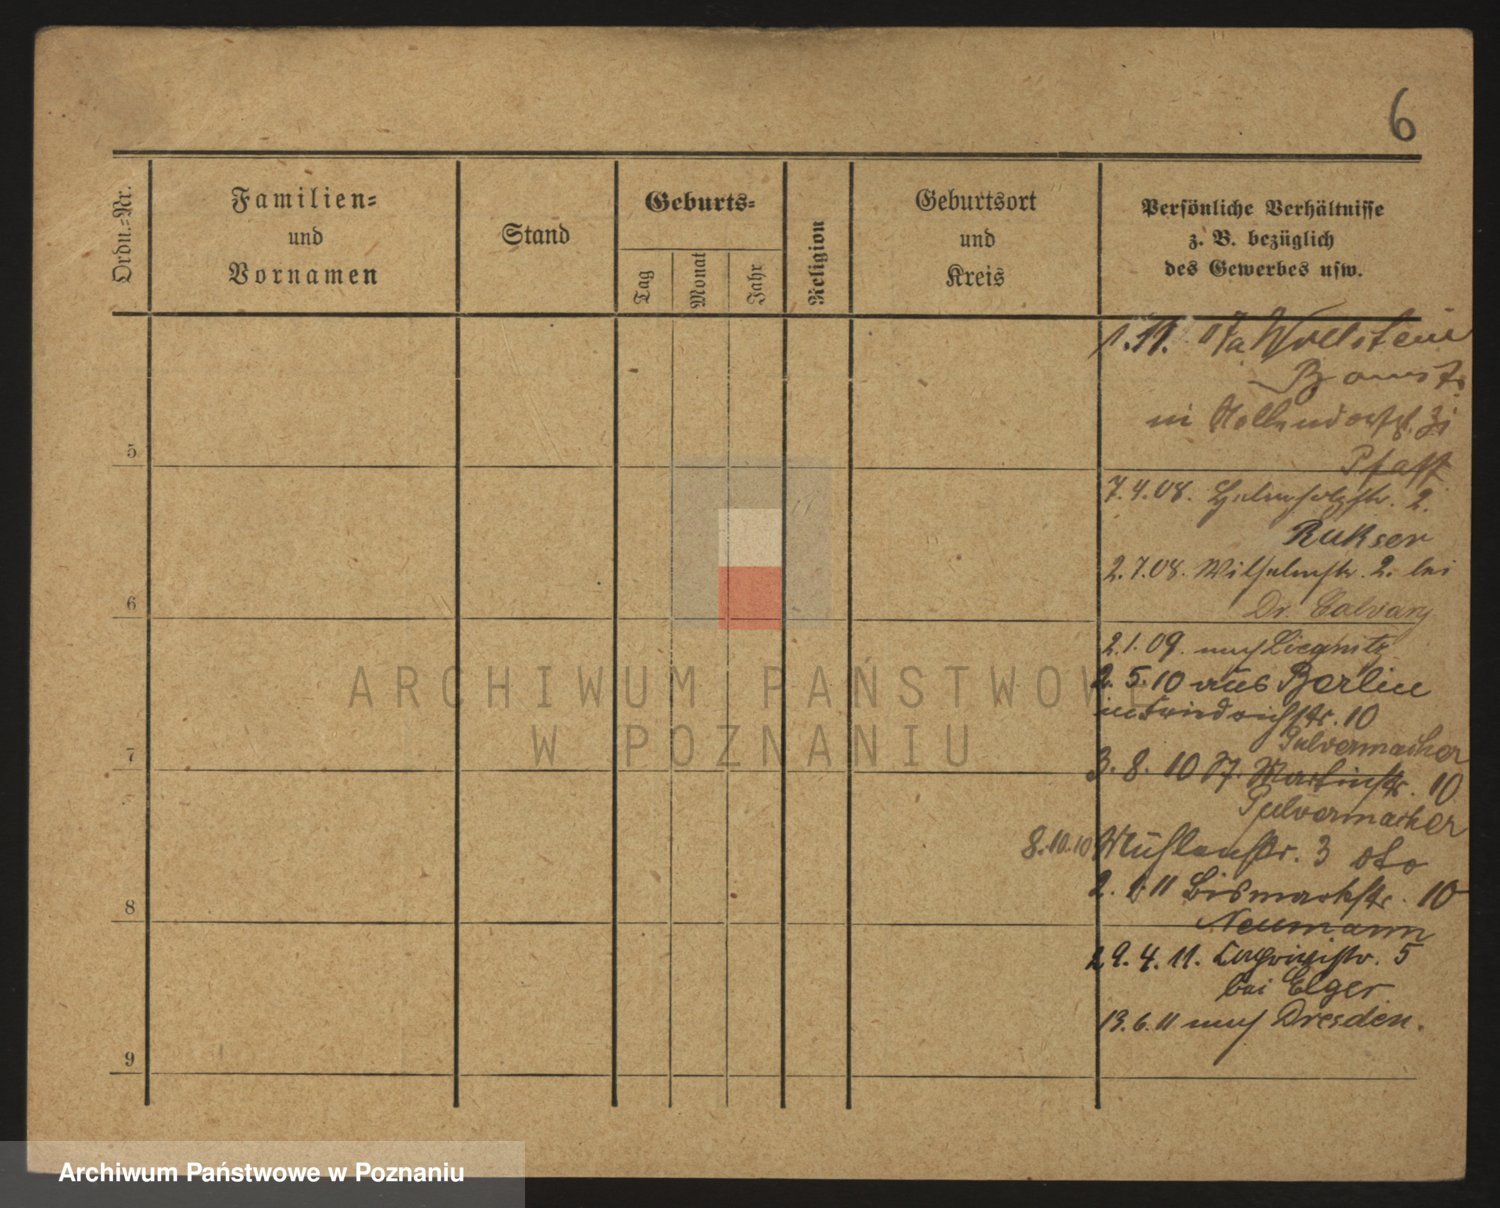 6
Ordn.-Nr.
Familien-
und
Vornamen
Stand
Geburts-
Tag
Monat
Jahr
Religion
Geburtsort
und
Kreis
Persönliche Verhältnisse
z. B. bezüglich
des Gewerbes usw.
1.11. 07 a Wollstein
Bomst
in Nollendorfstr. 31
Pfaff
5
7.4.08. Helmholtzstr. 2.
Rukser
2.7.08. Wilhelmstr. 2. bei
Dr. Calvary
6
2.1.09. nach Liegnitz
2. 5. 10 aus Berlin
in Friedrichstr. 10
Pulvermacher
7
3. 8. 10 Martinstr. 10
Pulvermacher
8.10.10 Mühlenstr. 3 dto
2. 1. 11 Bismarckstr. 10
Neumann
8
29. 4. 11. 5
bei Elger
13.6.11 nach Dresden.
9
ARCHIWUM PAŃSTWOWE
W POZNANIU
Archiwum Państwowe w Poznaniu